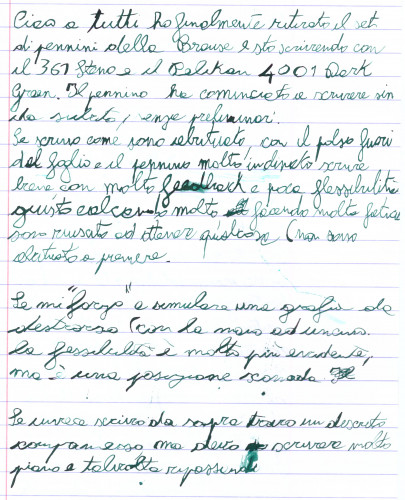 Ciao a tutti ho finalmente ritirato il set
di pennini della Brause e sto scrivendo con
il 361 Steno e il Pelikan 4001 Dark
Green. Il pennino ha cominciato a scrivere sin
da subito, senza preliminari.
Se scrivo come sono abituato, con il polso fuori
dal foglio e il pennino molto inclinato scrive
bene con molto feedback e poca flessibilità
giusto calcando molto facendo molta fatica
sono riuscito ad ottenere qualcosa (non sono
abituato a premere.
Se mi "forzo" a simulare una grafia da
destrorso (con la mano ad uncino
la flessibilità è molto più evidente,
ma è una posizione scomoda
Se invece scrivo da sopra trovo un discreto
compromesso ma devo scrivere molto
piano e talvolta ripassando